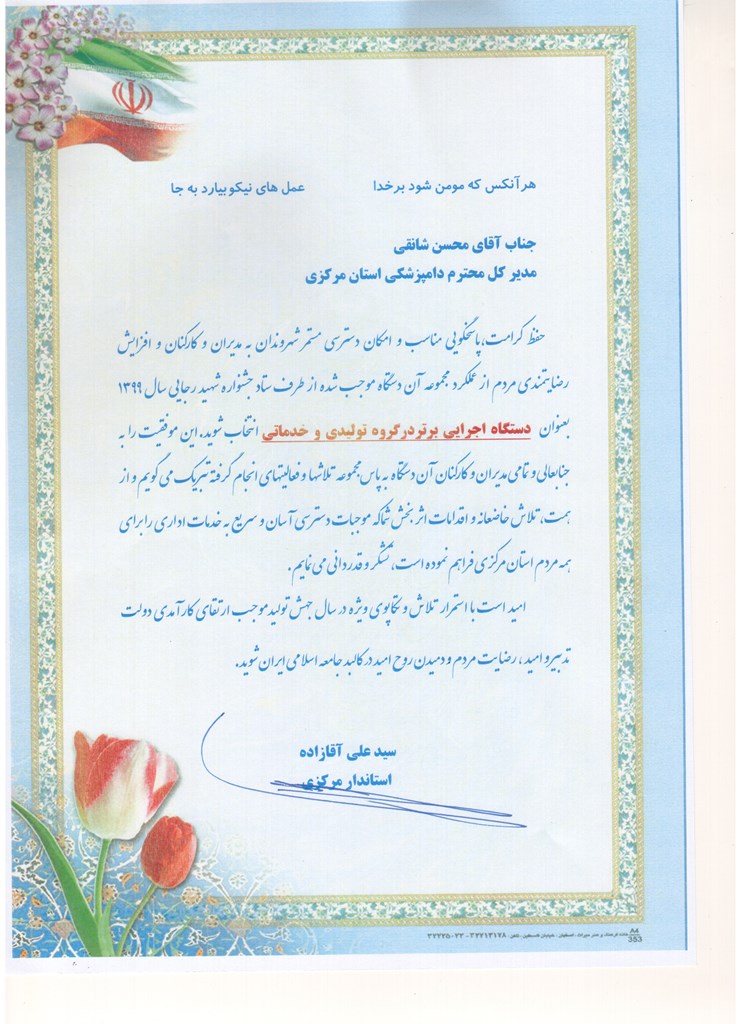 هرآنکس که مومن شود برخدا عمل های نیکو بیارد به جا
جناب آقای محسن شانقی
مدیر کل محترم دامپزشکی استان مرکزی
حفظ کرامت، پاسخگویی مناسب و امکان دسترسی مستمر شهروندان به مدیران و کارکنان و افزایش
رضایتمندی مردم از عملکرد مجموعه آن دستگاه موجب شده از طرف ستاد جشنواره شهید رجایی سال ۱۳۹۹
بعنوان دستگاه اجرایی برتر درگروه تولیدی و خدماتی انتخاب شوید. این موفقیت را به
جنابعالی و تمامی مدیران و کارکنان آن دستگاه به پاس مجموعه تلاشها و فعالیتهای انجام گرفته تبریک می گویم و از
همت، تلاش خاضعانه و اقدامات اثربخش شما که موجبات دسترسی آسان و سریع به خدمات اداری را برای
همه مردم استان مرکزی فراهم نموده است، تشکر و قدردانی می نمایم.
امید است با استمرار تلاش و تکاپوی ویژه در سال جهش تولید موجب ارتقای کارآمدی دولت
تدبیر و امید، رضایت مردم و دمیدن روح امید در کالبد جامعه اسلامی ایران شوید.
سید علی آقازاده
استاندار مرکزی
A4
353